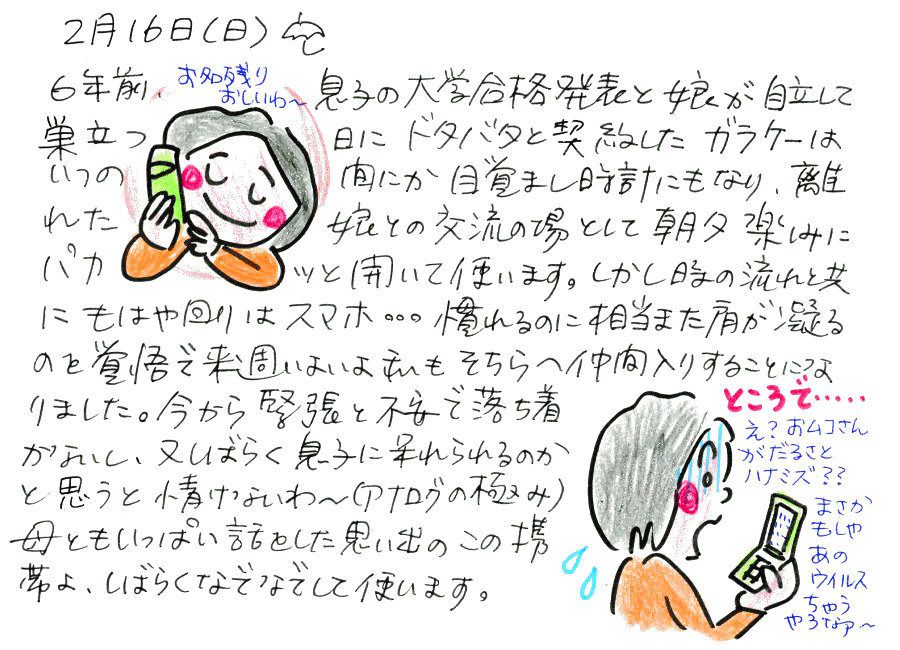 2月16日(日)
6年前、息子の大学合格発表と娘が自立して
巣立つ日にドタバタと契約したガラケーは
いつの間にか目覚まし時計にもなり、離
れた娘との交流の場として朝夕楽しみに
パカッと開いて使います。しかし時の流れと共
にもはや回りはスマホ…慣れるのに相当また肩が凝る
のを覚悟で来週いよいよ私もそちらへ仲間入りすることにな
りました。今から緊張と不安で落ち着
かないし、又しばらく息子に呆れられるのか
と思うと情けないわ〜(アナログの極み)
母ともいっぱい話をした思い出のこの携
帯よ、しばらくなでなでして使います。
お名残り
おしいわ〜
ところで・・・・・
え?おムコさん
がだるさと
ハナミズ??
まさか
もしや
あの
ウイルス
ちゃう
やろなァ〜